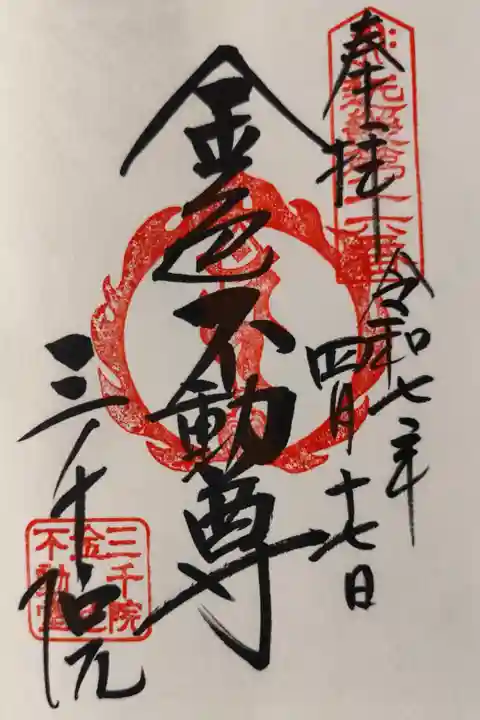 奉拝
令和七年
四月十七日
金色不動尊
三千院
三千院
金色
不動堂